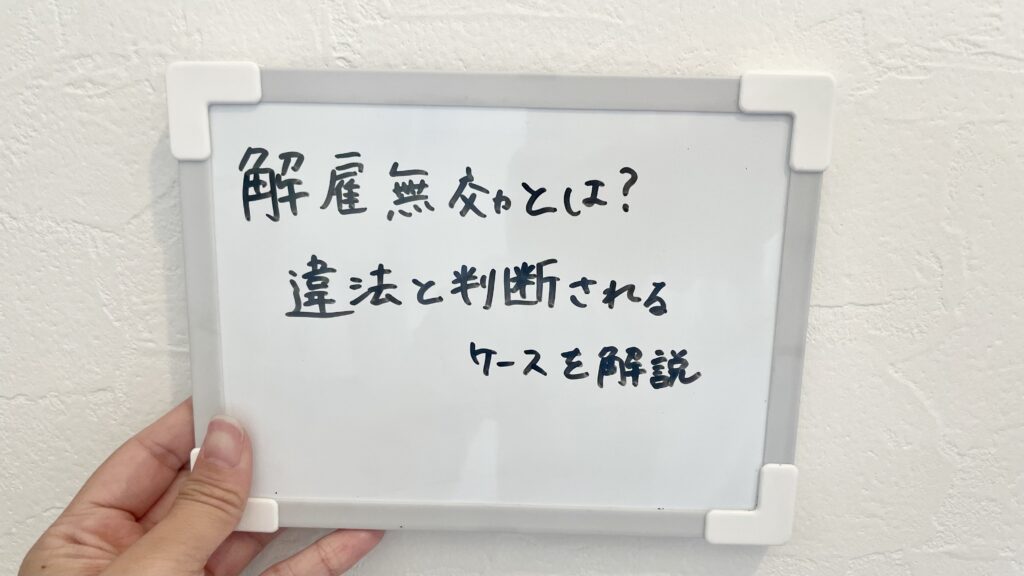 解雇無効とは?
違法と判断される
ケースを解説